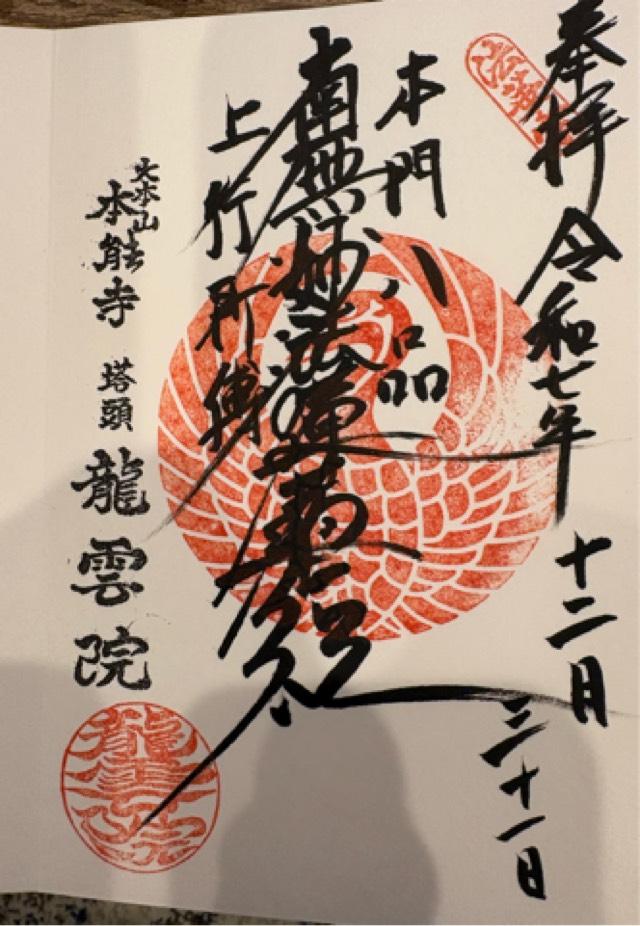 奉拝
令和七年
十二月
三十一日
本門八品
南無妙法蓮華経
上行所傳
大本山
本能寺
塔頭
龍雲院
龍雲院